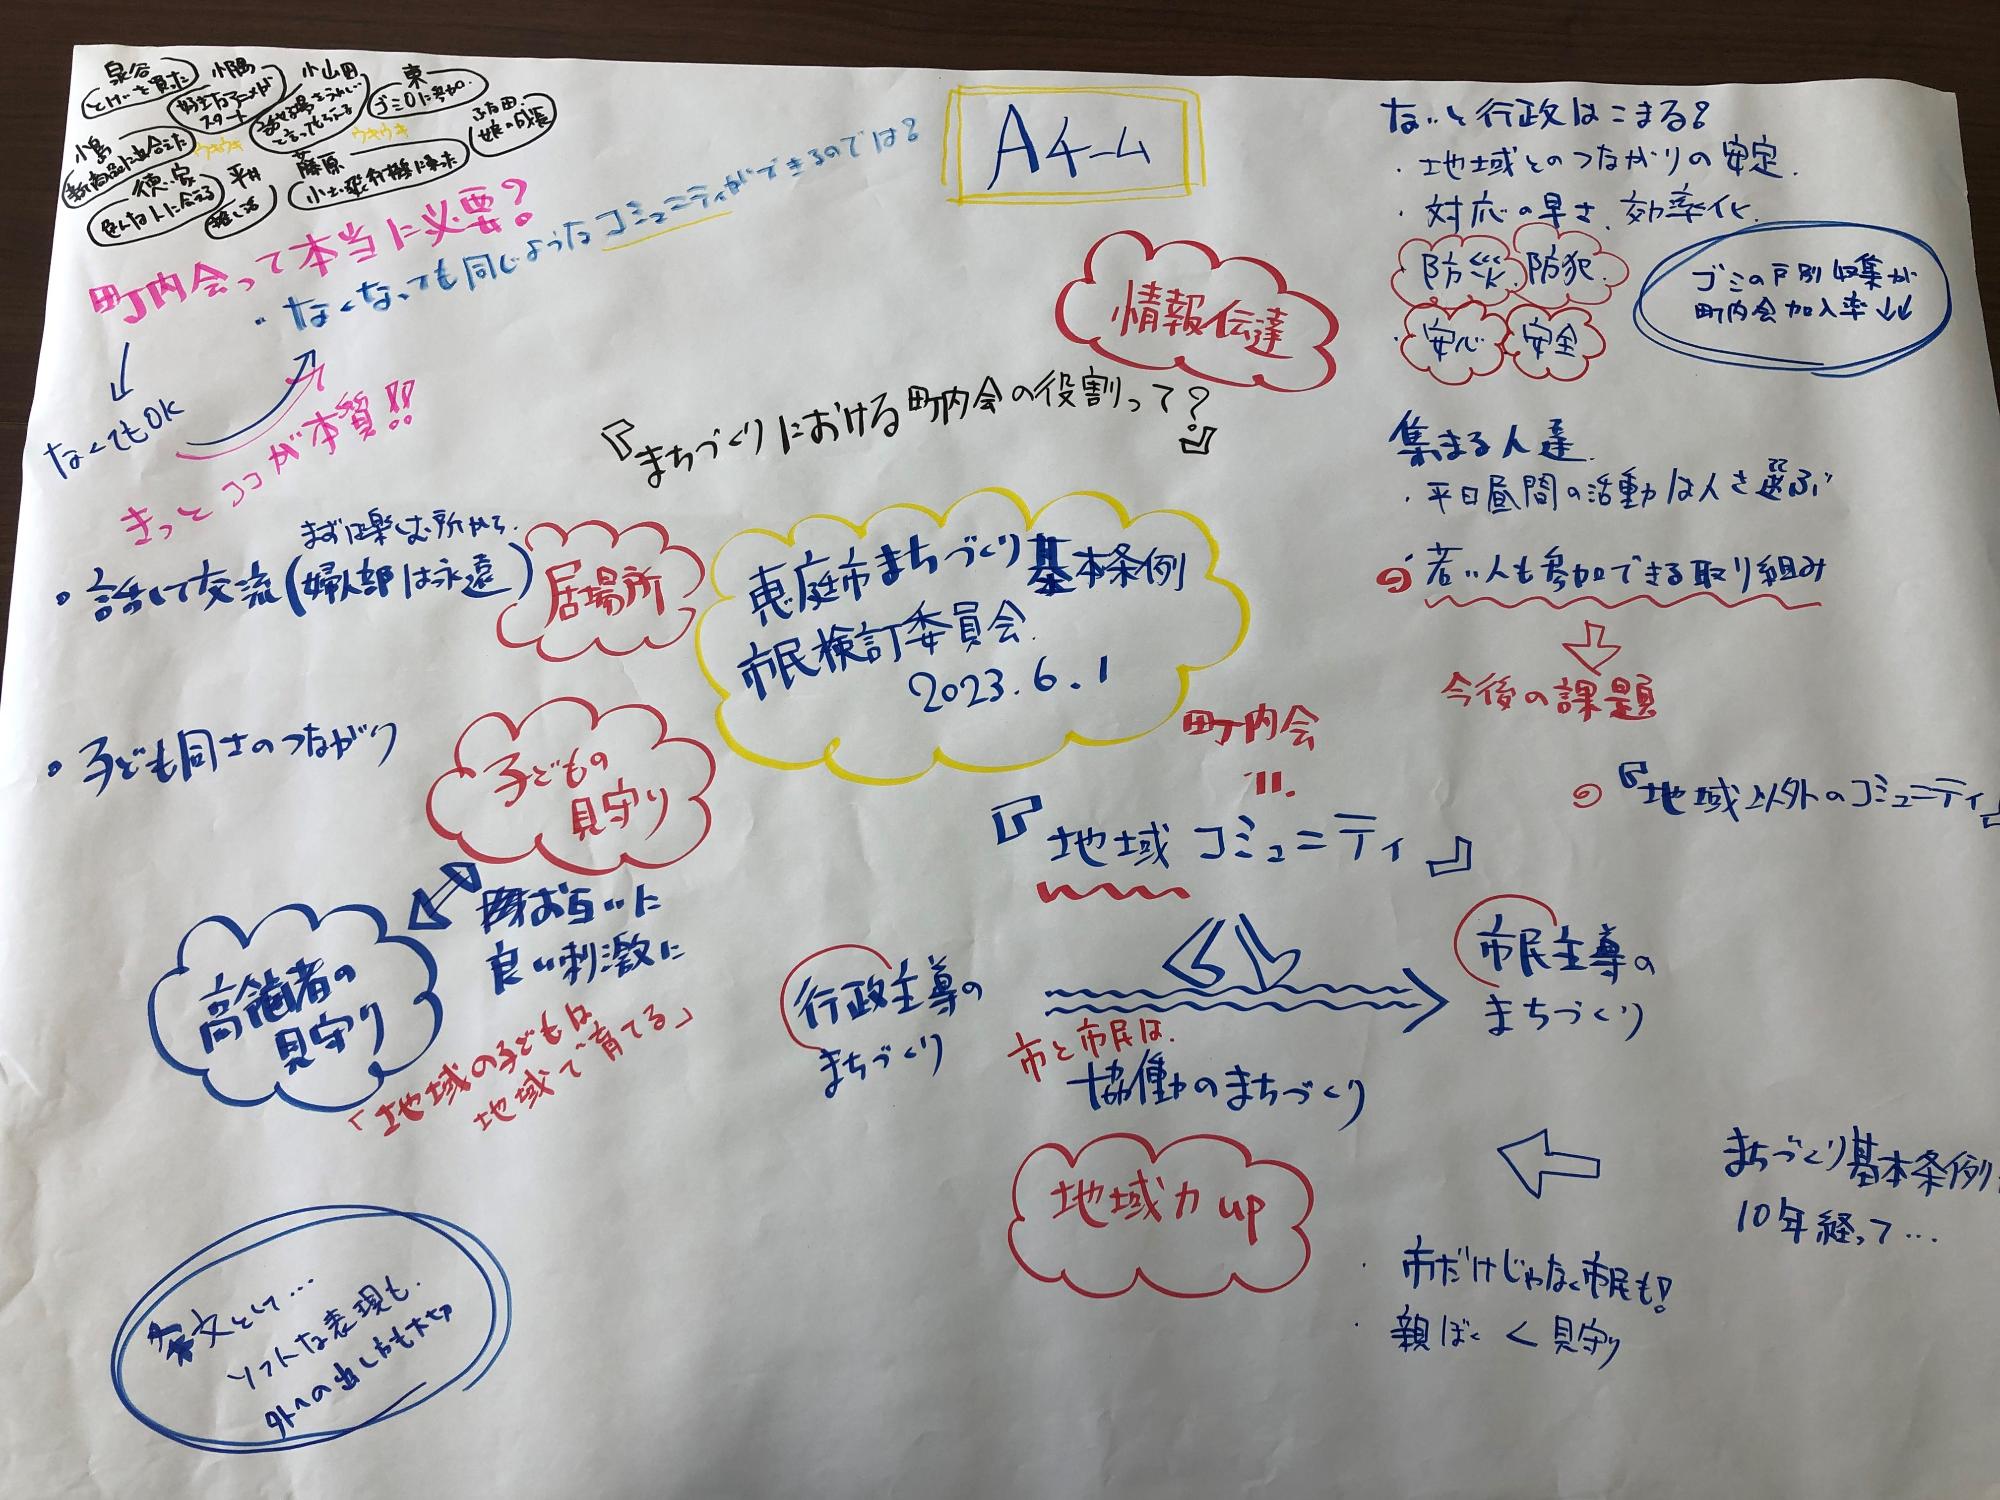 泉谷
とけいを買った
小隅
好きなアニメが
スタート
小山田
話せる場をうれしい
と言ってもらえる
東
ゴミ0に参加
ふな田
娘の成長
小島
新商品に出合えた
ウキウキ
ウキウキ
徳家
色んな人に会える
平井
推し活
藤原
小さい飛行機に乗った
町内会って本当に必要?
・なくなっても同じようなコミュニティができるのでは?
なくてもOK
きっとココが本質!!
Aチーム
情報伝達
『まちづくりにおける町内会の役割って?』
ないと行政はこまる?
・地域とのつながりの安定.
・対応の早さ、効率化
・防災 防犯
・安心 安全
ゴミの戸別収集が
町内会加入率↓↓
集まる人達
・平日昼間の活動は人を選ぶ
若い人も参加できる取り組み
今後の課題
『地域以外のコミュニティ』
まずは楽しむ所から
・話して交流(婦人部は永遠)
居場所
恵庭市まちづくり基本条例
市民検討委員会
2023.6.1
・子ども同士のつながり
子どもの
見守り
お互いに
良い刺激に
高齢者の
見守り
「地域の子どもは
地域で育てる」
町内会
『地域コミュニティ』
行政主導の
まちづくり
市民主導の
まちづくり
市と市民は
協働のまちづくり
地域力up
まちづくり基本条例
10年経って…
・市だけじゃなく市民も!
・親ぼく 見守り
条文として…
ソフトな表現も
外への出し方も大切